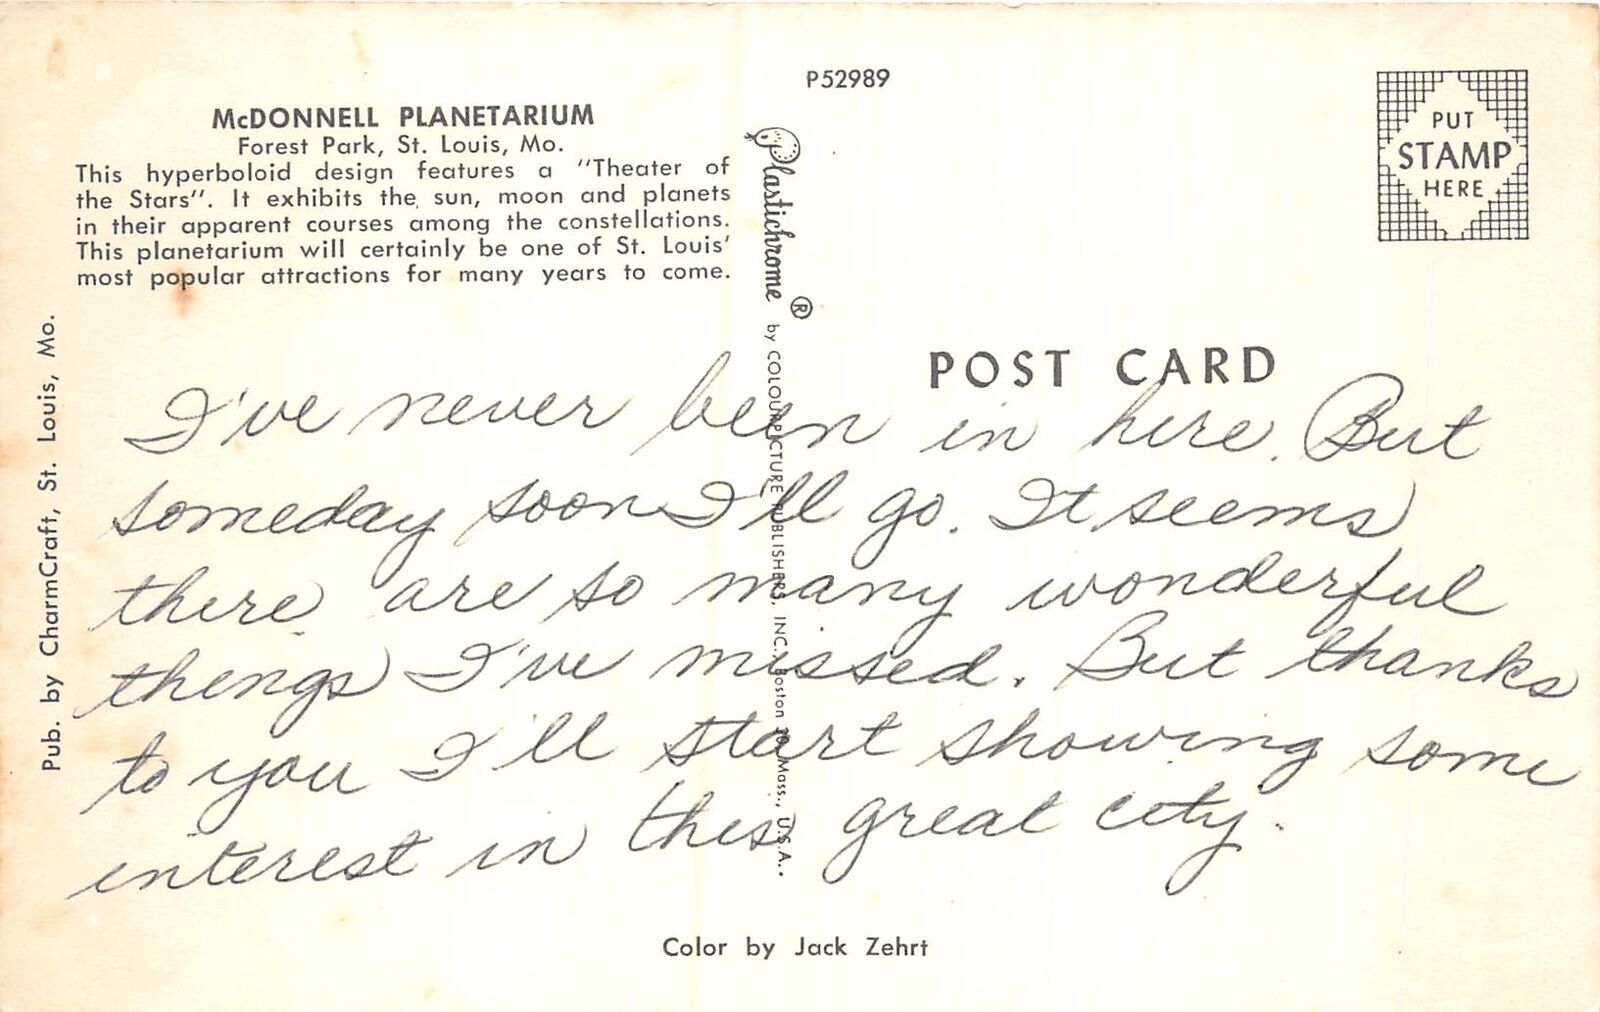 P52989
McDONNELL PLANETARIUM
Forest Park, St. Louis, Mo.
This hyperboloid design features a "Theater of
the Stars". It exhibits the sun, moon and planets
in their apparent courses among the constellations.
This planetarium will certainly be one of St. Louis'
most popular attractions for many years to come.
PUT
STAMP
HERE
Pub. by CharmCraft, St. Louis, Mo.
Plastichrome ® by COLOURPICTURE PUBLISHERS, INC., Boston 30, Mass., U.S.A.
POST CARD
I've never been in here. But
someday soon I'll go. It seems
there are so many wonderful
things I've missed. But thanks
to you I'll start showing some
interest in this great city.
Color by Jack Zehrt